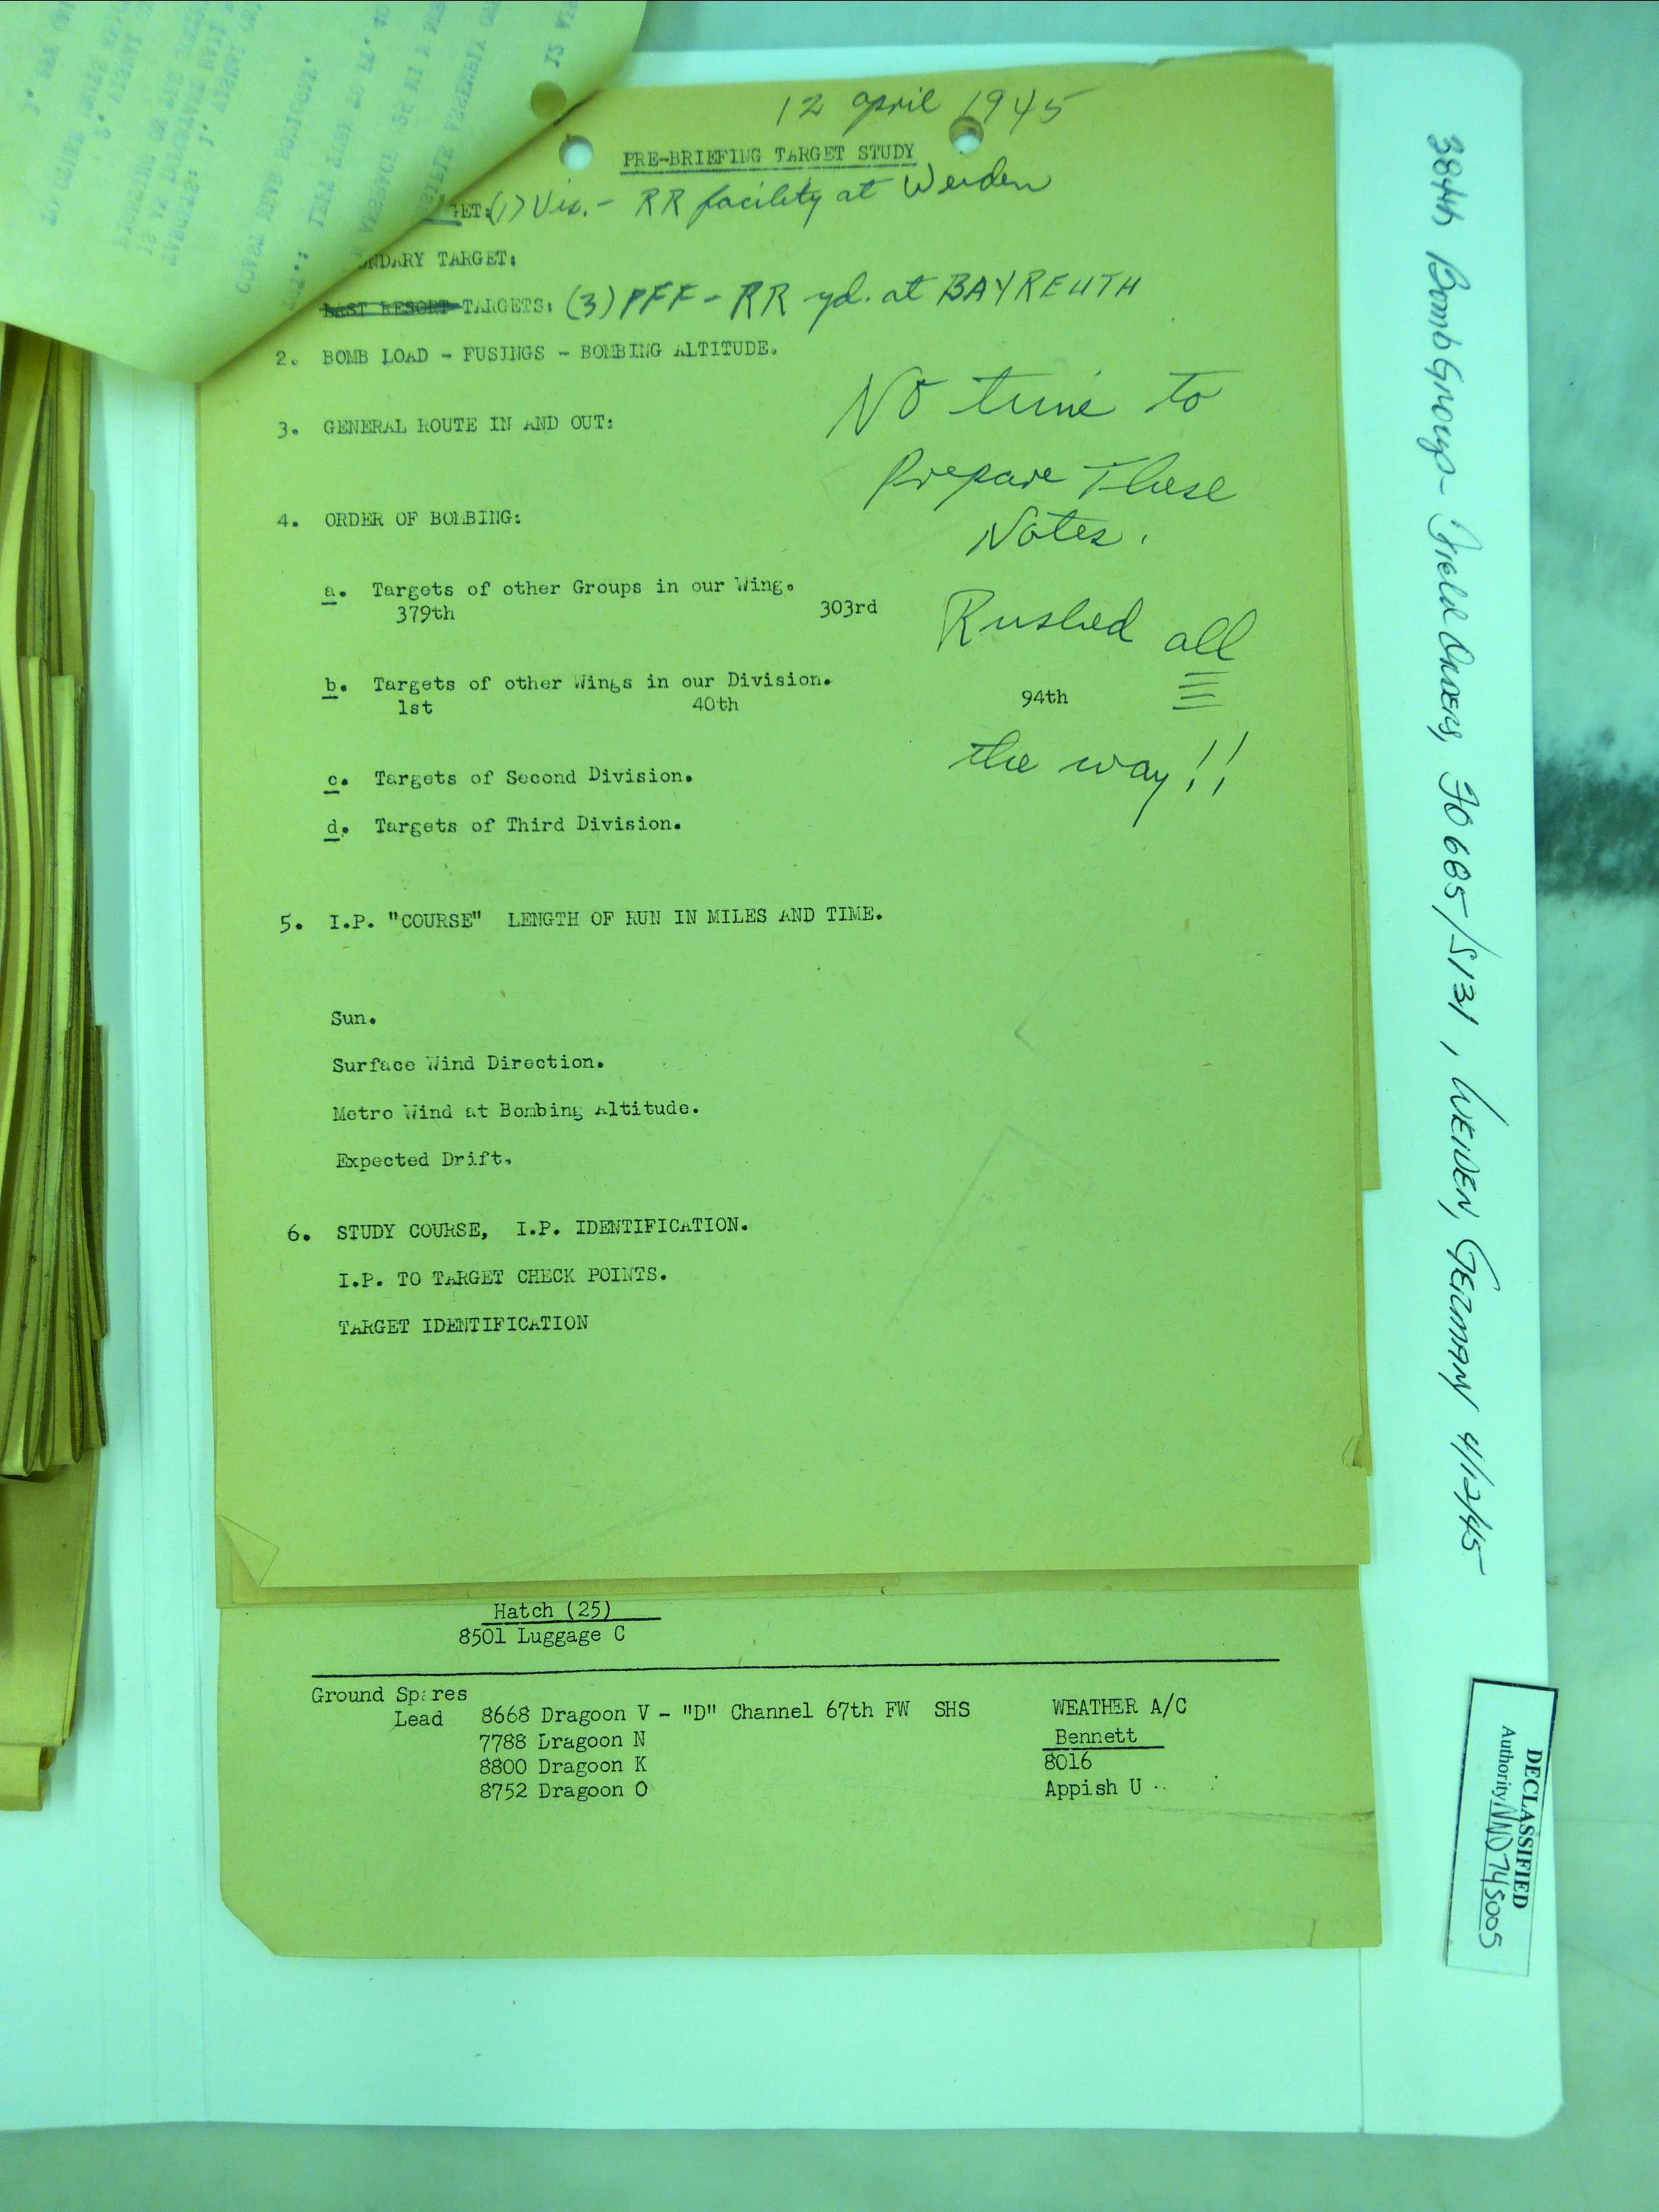 12 april 1945
PRE-BRIEFING TARGET STUDY
GET: (1) Vis. - RR facility at Weiden
ONDARY TARGET:
LAST RESORT TARGETS: (3) PFF - RR yd. at BAYREUTH
2. BOMB LOAD - FUSINGS - BOMBING ALTITUDE.
No time to
3. GENERAL ROUTE IN AND OUT:
Prepare These
4. ORDER OF BOMBING:
Notes.
a. Targets of other Groups in our Wing.
379th 303rd
Rushed all
b. Targets of other Wings in our Division.
1st 40th 94th
the way!!
c. Targets of Second Division.
d. Targets of Third Division.
5. I.P. "COURSE" LENGTH OF RUN IN MILES AND TIME.
Sun.
Surface Wind Direction.
Metro Wind at Bombing Altitude.
Expected Drift.
6. STUDY COURSE, I.P. IDENTIFICATION.
I.P. TO TARGET CHECK POINTS.
TARGET IDENTIFICATION
Hatch (25)
8501 Luggage C
Ground Spares
Lead 8668 Dragoon V - "D" Channel 67th FW SHS WEATHER A/C
7788 Dragoon N Bennett
8800 Dragoon K 8016
8752 Dragoon O Appish U
384th Bomb Group - Field Orders, FO 685/S131, WEIDEN, GERMANY 4/12/45
DECLASSIFIED
Authority NND 745005